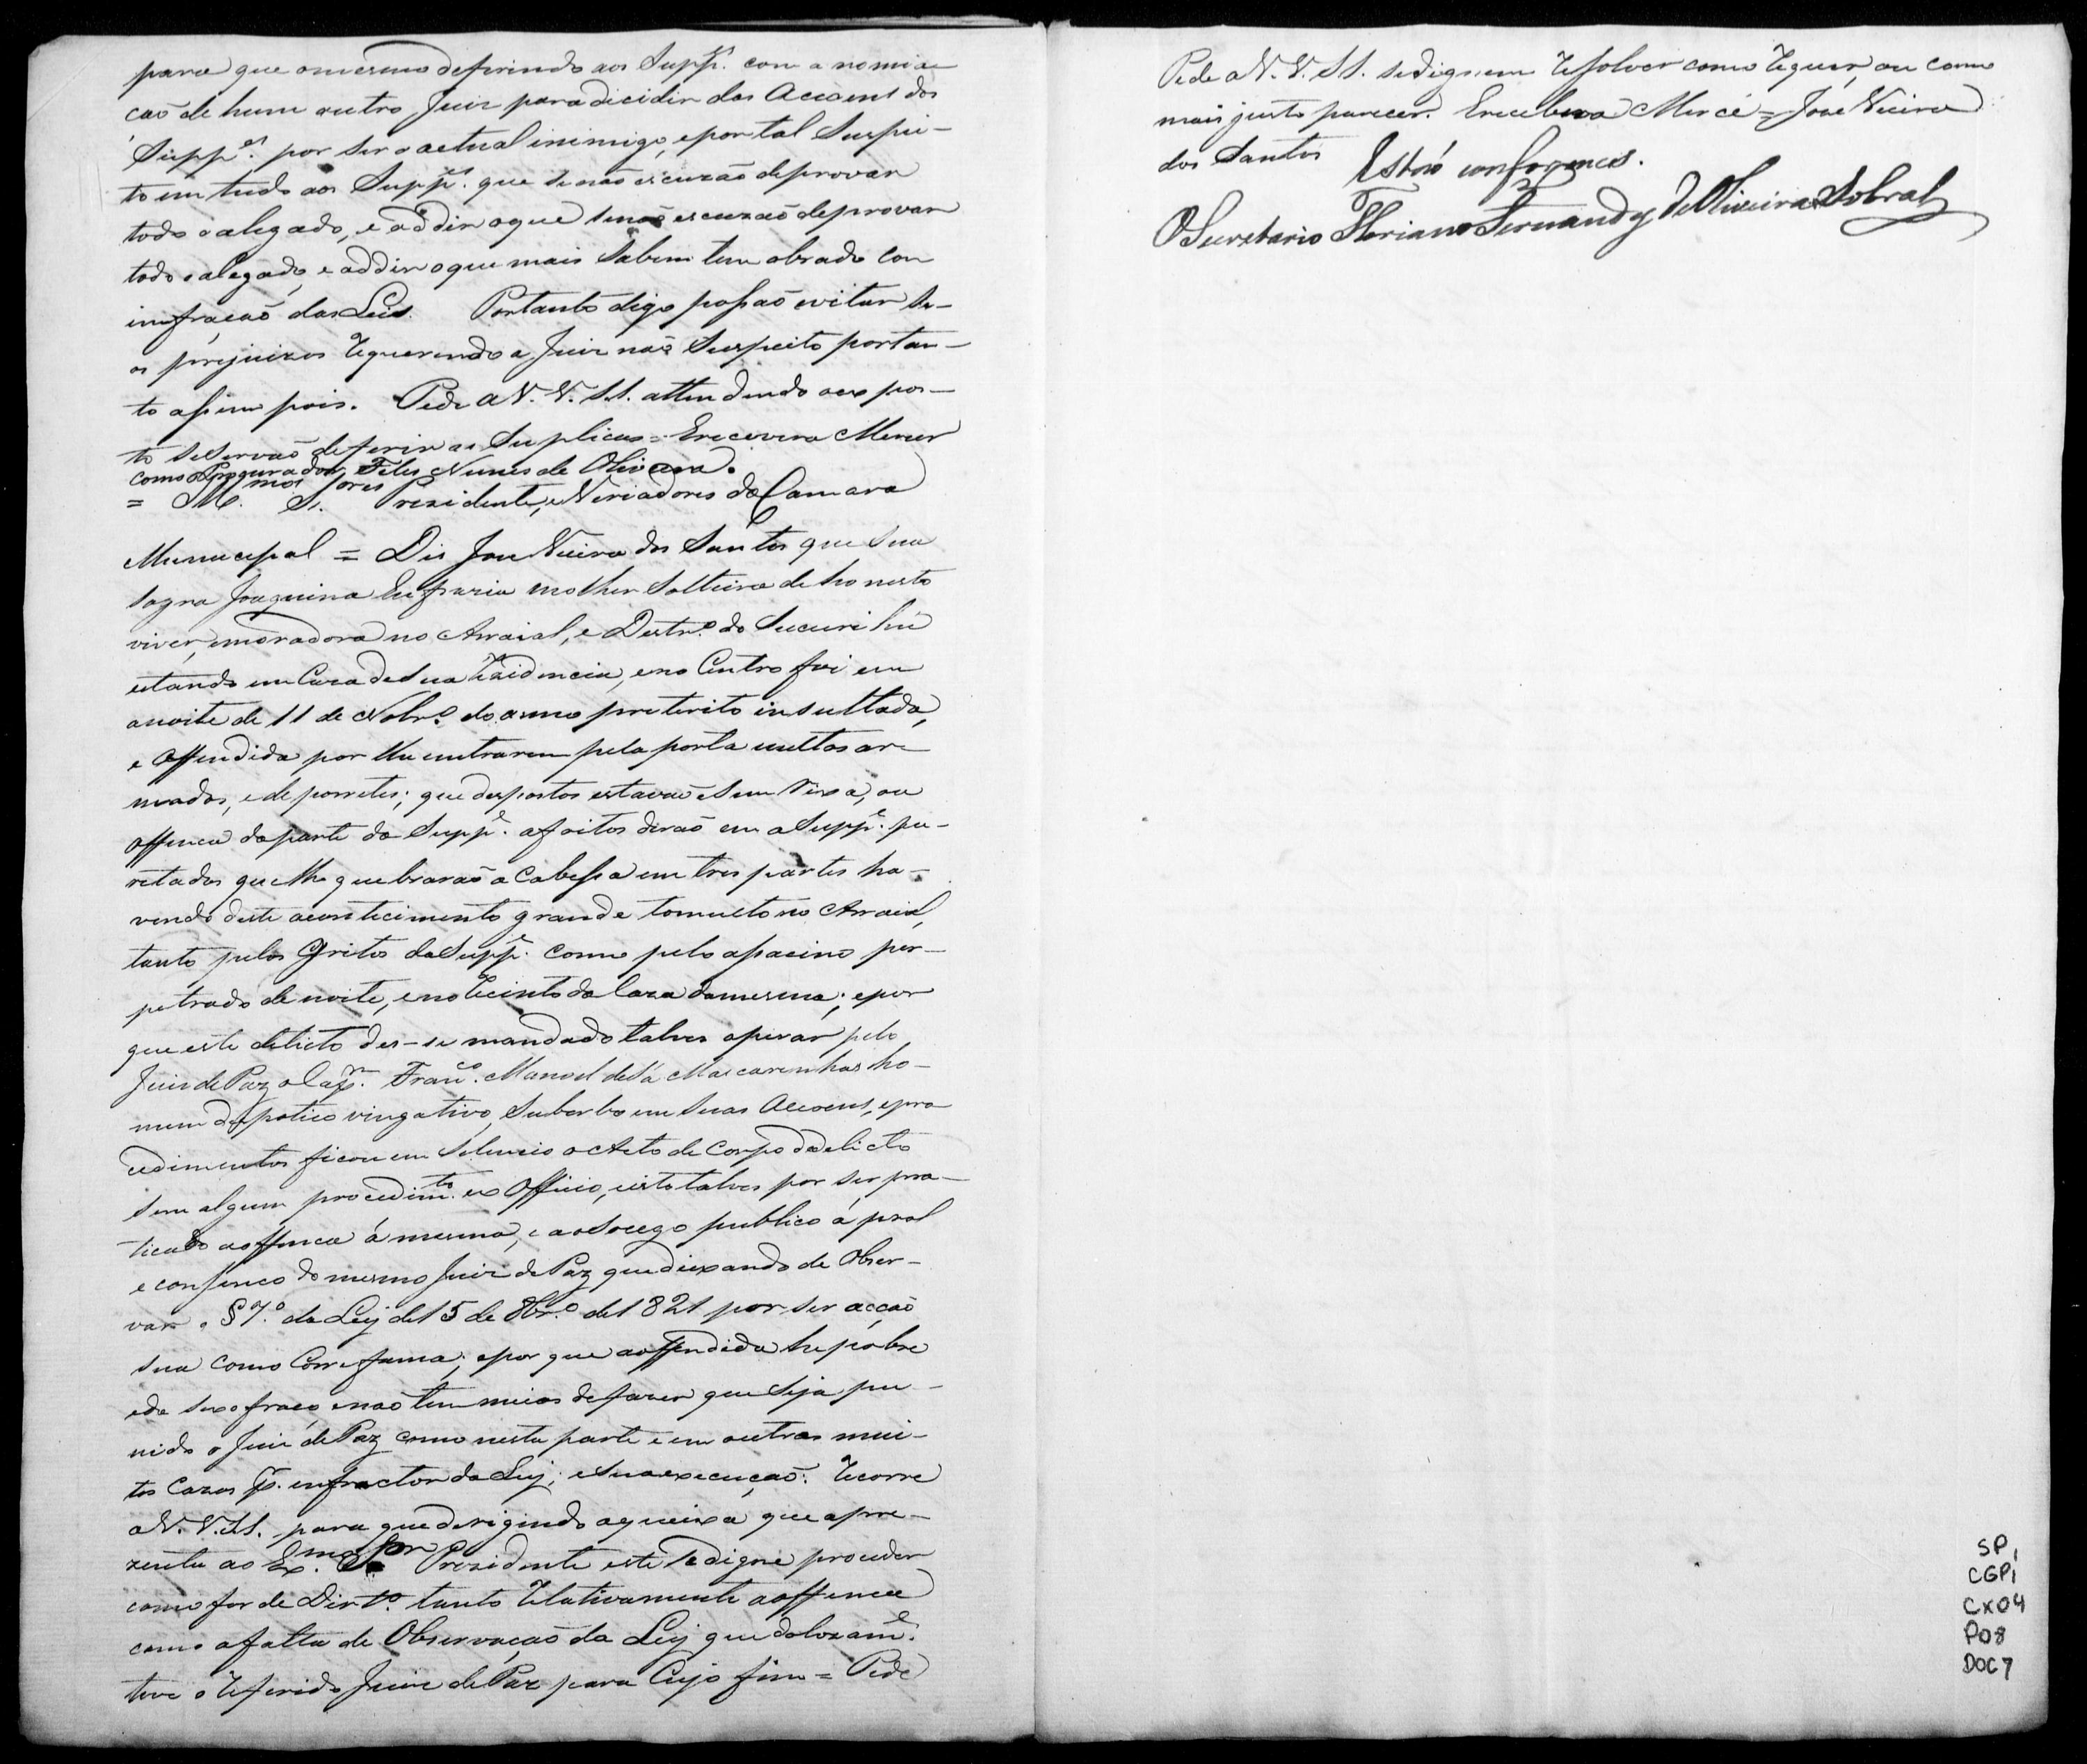 para que o mesmo deferindo aos Supp.es com a nomia-
ção de hum outro Juiz para dicidir das Acçoens dos
Supp.es por ser o actual inimigo, e por tal Suspei-
to em tudo aos Supp.es que se não escuzão de provar
todo o alegado, e addir o que se não escuzão de provar
todo o alegado, e addir o que mais Sabem tem obrado con
infração das Leis. Portanto digo possão evitar se-
os prejuizos requerendo a Juiz não Suspeito portan-
to assim pois. Pede a V. V. S.S. attendendo ao expos-
to se Servão deferir as Suplicas = E recevera Mercer
como Procurador Felis Nunes de Olivera.
= Ill.mos Sres Prezidente, e Veriadores da Camara
Munucepal = Dis Joze Vieira dos Santos que sua
sogra Joaquina Eufrazia molher Solteira de honesto
viver, moradora no Arraial, e Destr.o do Sucurihú
estando em Caza de Sua rezidencia, e no Centro foi em
a noite de 11 de Nobr.o do anno preterito insultada,
e offendida por lhe entrarem pela porta vultos ar-
mados, e de porretes; que dispostos estavão e sem rixa, ou
offença da parte da Supp.e afoitos derão em a Supp.e pu-
retadas que lhe quebrarão a Cabessa em tres partes ha-
vendo deste acontecimento grande tomulto no Arraial,
tanto pelos Gritos da Supp.e como pelo assacino per-
petrado de noite, e no recinto da Caza da mesma; e por
que este delicto des-se mandado talves operar pelo
Juiz de Paz o Cap.m Fran.co Manoel de Sá Mascarenhas ho-
mem despotico vingativo, Suberbo em Suas Acçoens, e pro
cedimentos ficou em Silencio o Acto de Corpo de delicto
sem algum procedim.to ex Officio, e isto talves por ser pra-
ticado a offença á mesma, e ao Socego publico á prol
e consenço do mesmo Juiz de Paz que deixando de Obser-
var o § 7.o da Ley de 15 de 8br.o de 1821 por ser acção
sua como Corre fama; e por que a offendida he pobre
e de sexo fraco e não tem meios de fazer que Seja pu-
nido o Juiz de Paz como nesta parte e em outros mui-
tos Cazos p.r enfractor da Ley; e sua execução: recorre
a V. V. S.S. para que derigindo a queixa que apre-
zenta ao Ex.mo Snr Prezidente este se digne proceder
como for de Dirt.o tanto relativamente a offença
como a falta de Observação da Ley que dolozam.e
teve o referido Juiz de Paz para Cujo fim = Pede
Pede a V. V. S.S. se dignem resolver como requer, ou como
mais justo parecer. E recebera Mercé = Joze Vieira
dos Santos Estão conformes.
O Secretario Floriano Fernandes de Oliveira Sobral
SP1
CGP1
CX04
P08
DOC7